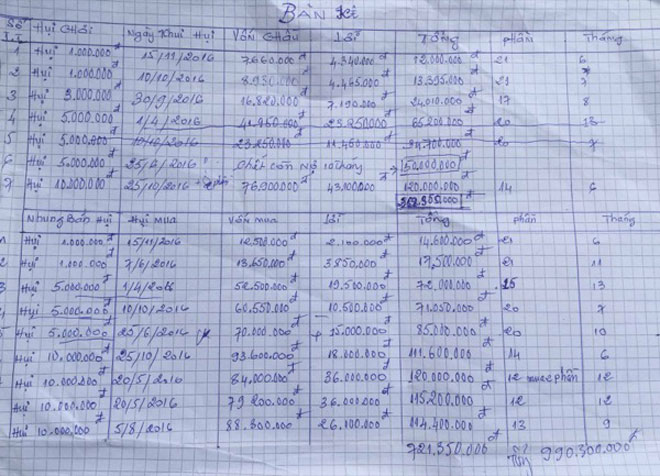 BẢN kê
Số Hụi chơi Ngày Khui Hụi Vốn Lời Tổng phần Tháng
1 Hụi 1.000.000đ 15/11/2016 7.660.000đ 12.000.000đ 21 6
2 Hụi 1.000.000đ 10/10/2016 4.465.000đ 13.395.000đ 21
3 Hụi 3.000.000đ 30/9/2016 16.820.000đ 7.190.000đ 24.010.000đ 17 8
4 Hụi 5.000.000đ 1/4/2016 65.200.000đ 20
5 Hụi 5.000.000đ 20 7
6 Hụi 5.000.000đ 50.000.000đ
7 Hụi 10.000.000đ 25/10/2016 76.900.000đ 43.100.000 120.000.000đ 14 6
Hụi mua Vốn mua Lời Tổng phần Tháng
Hụi 1.000.000đ 15/11/2016 12.500.000đ 2.100.000đ 14.600.000đ 21 6
2 Hụi 1.000.000 7/6/2016 13.650.000đ 3.850.000đ 17.500.000đ 21 11
3 Hụi 5.000.000đ 1/4/2016 52.500.000đ 19.500.000đ 72.000.000đ 13
Hụi 5.000.000đ 10/10/2016 60.550.000đ 10.500.000đ 71.050.000đ 20 7
Hụi 5.000.000đ 25/6/2016 70.000.000đ 15.000.000đ 85.000.000đ 20 10
Hụi 10.000.000đ 25/10/2016 93.600.000đ 18.000.000đ 111.600.000đ 14 6
Hụi 10.000.000đ 20/5/2016 84.000.000đ 36.000.000đ 120.000.000đ 12 phần 12
Hụi 10.000.000đ 20/5/2016 79.200.000đ 36.000.000đ 115.200.000đ 12 12
Hụi 10.000.000đ 5/8/2016 88.300.000đ 26.100.000đ 114.400.000đ 13 9
721.350.000đ 990.300.000đ